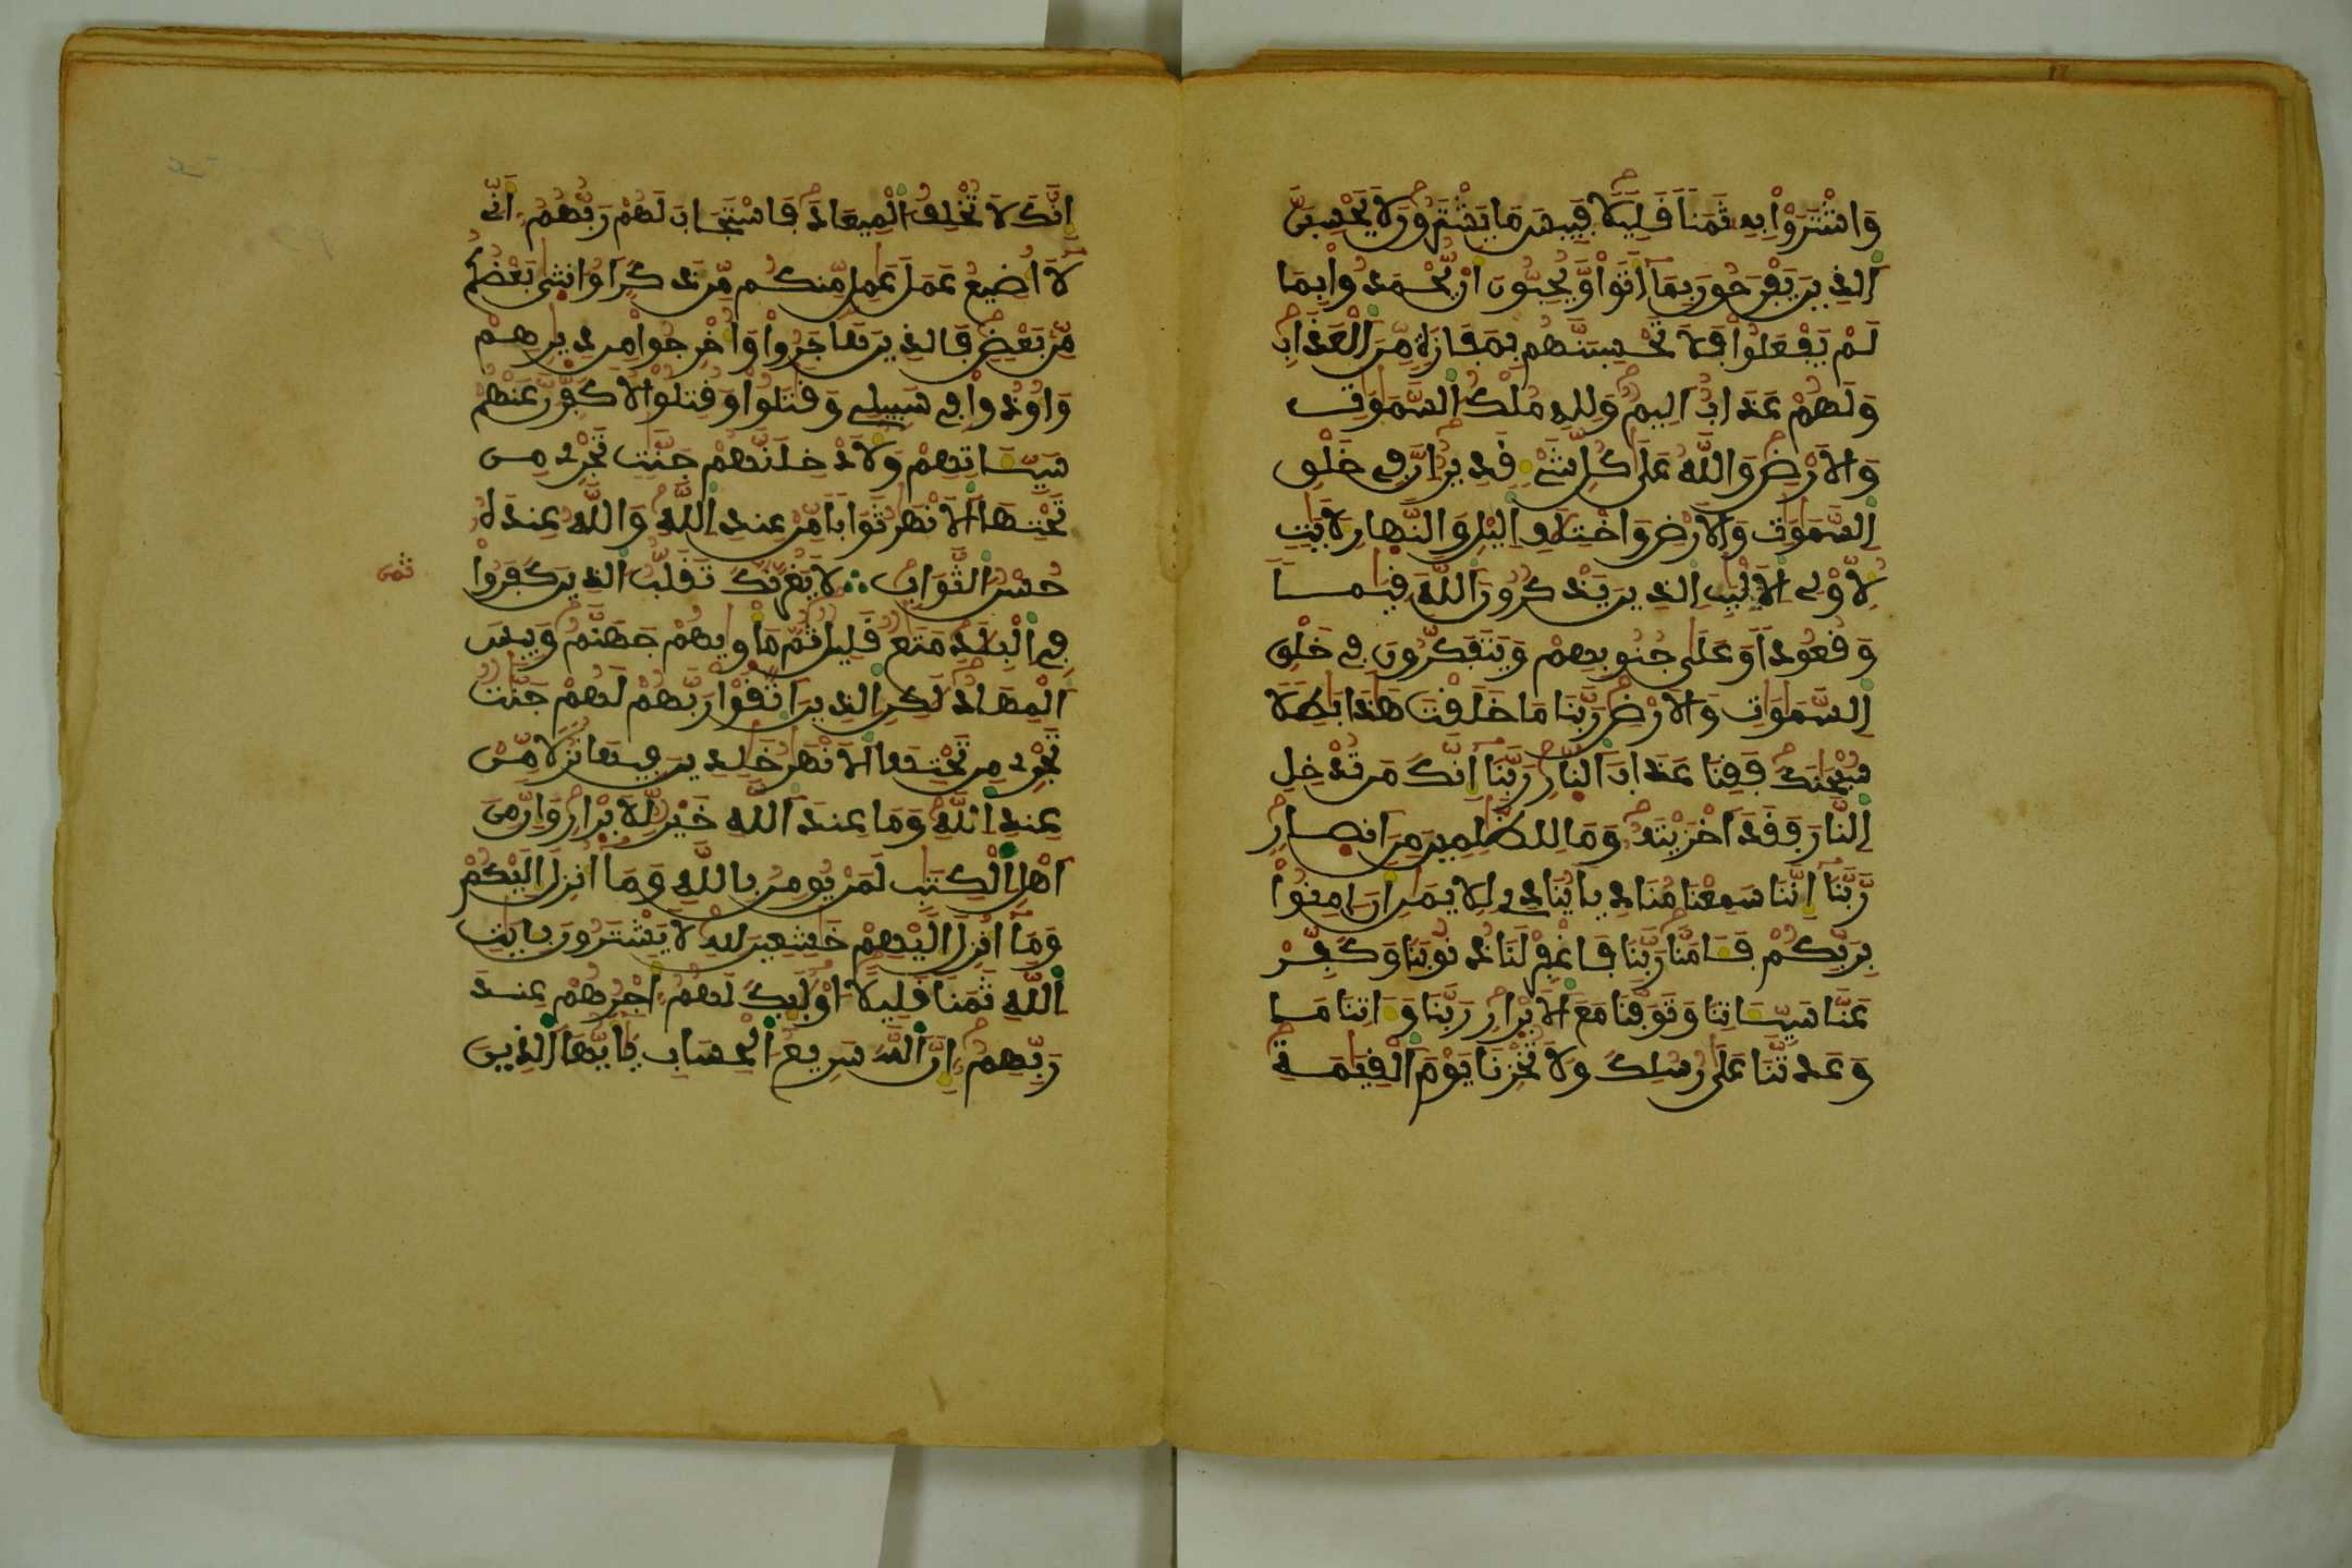 وَاشْتَرَوْا بِهِ ثَمَنًا قَلِيلًا فَبِيسَ مَا يَشْتَرُونَ لَا يَحْسِبَنَّ
اَلذِينَ يَفْرَحُونَ بِمَا أَتَوا وَّيُحِبُّونَ أَنْ يُّحْمَدُوا بِمَا
لَمْ يَفْعَلُوا فَلَا تَحْسِبَنَّهُم بِمَفَازَةٍ مِّنَ اَلْعَذَابِ
وَلَهُمْ عَذَابٌ اَلِيمٌ وَلِلهِ مُلْكُ اُلسَّمَٰوَٰتِ
وَالَارْضِ وَاللَّهُ عَلَىٰ كُلِّ شَيْءٍ قَدِيرٌ اِنَّ فِي خَلْقِ
اِلسَّمَٰوَٰتِ وَالَارْضِ وَاخْتِلَٰفِ اِليْلِ وَالنَّهارِ لَأَيَٰتٍ
لِّأُوْلِي اِلَالْبَٰبِ اِلذِينَ يَذْكُرُونَ اَللَّهَ قِيَٰمًا
وَقُعُودًا وَعَلَىٰ جُنُوبِهِمْ وَيَتَفَكَّرُونَ فِي خَلْقِ
اِلسَّمَٰوَٰتِ وَالَارْضِ رَبَّنَا مَا خَلَقْتَ هَٰذَا بَٰطِلًا
سُبْحَٰنَكَ فَقِنَا عَذَابَ اَلنّارِ رَبَّنَا إِنَّكَ مَن تُدْخِلِ
اِلنَّارَ فَقَدَ اَخْزَيْتَهُ وَمَا لِلظَّٰلِمِينَ مِنَ اَنصارِ
رَّبَّنَا إِنَّنَا سَمِعْنَا مُنَادِيًا يُنَادِي لِلِايمَٰنِ أَنَ اٰمِنُوا
بِرَبِّكُمْ فَـَٔامَنَّا رَبَّنَا فَاغْفِرْ لَنَا ذُنُوبَنَا وَكَفِّرْ
عَنَّا سَيِّـَٔاتِنَا وَتَوَفَّنَا مَعَ اَلَابْرارِ رَبَّنَا وَءَاتِنَا مَا
وَعَدتَّنَا عَلَىٰ رُسُلِكَ وَلَا تُخْزِنَا يَوْمَ اَلْقِيَٰمَةِ
إِنَّكَ لَا تُخْلِفُ اُلْمِيعَادَ فَاسْتَجَابَ لَهُمْ رَبُّهُمُ أَنِّي
لَا أُضِيعُ عَمَلَ عَٰمِلٍ مِّنكُم مِّن ذَكَرٍ اَوُ انثىٰ بَعْضُكُم
مِّن بَعْضٍ فَالذِينَ هَاجَرُوا وَأُخْرِجُوا مِن دِيٰرِهِمْ
وَأُوذُوا فِي سَبِيلِي وَقَٰتَلُوا وَقُتِلُوا لَأُكَفِّرَنَّ عَنْهُمْ
سَيِّـَٔاتِهِمْ وَلَأُدْخِلَنَّهُمْ جَنَّٰتٍ تَجْرِي مِن
تَحْتِهَا اَلَانْهَٰرُ ثَوَابًا مِّنْ عِندِ اِللَّهِ وَاللَّهُ عِندَهُ
حُسْنُ الثَّوَابِ ∴ لَا يَغُرَّنَّكَ تَقَلُّبُ اُلذِينَ كَفَرُوا
ثمن
فِي اِلْبِلَٰدِ مَتَٰعٌ قَلِيلٌ ثُمَّ مَأْوٰيهُمْ جَهَنَّمُ وَبِيسَ
اَلْمِهَادُ لَٰكِنِ اِلذِينَ اَتَّقَوْا رَبَّهُمْ لَهُمْ جَنَّٰتٌ
تَجْرِي مِن تَحْتِهَا اَلَانْهَٰرُ خَٰلِدِينَ فِيهَا نُزُلًا مِّنْ
عِندِ اِللَّهِ وَمَا عِندَ اَللَّهِ خَيْرٌ لِّلَابْرارِ وَإِنَّ مِنَ
اَهْلِ اِلْكِتَٰبِ لَمَنْ يُومِنُ بِاللَّهِ وَمَا أُنزِلَ إِلَيْكُمْ
وَمَا أُنزِلَ إِلَيْهِمْ خَٰشِعِينَ لِلهِ لَا يَشْتَرُونَ بِـَٔايَٰتِ
اِللَّهِ ثَمَنًا قَلِيلًا أُوْلَٰئِكَ لَهُمُ أَجْرُهُمْ عِندَ
رَبِّهِمُ إِنَّ اَللَّهَ سَرِيعُ اُلْحِسَابِ يَٰأَيُّهَا اَلذِينَ